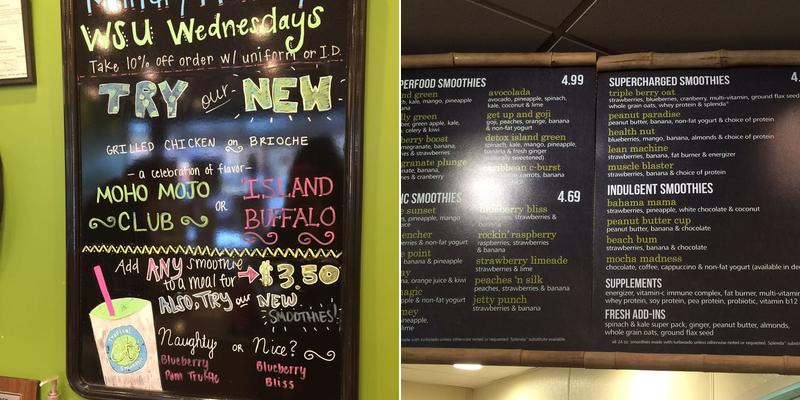 WSU Wednesdays
Take 10% off order w/ uniform or I.D.
TRY our NEW
GRILLED CHICKEN on BRIOCHE
- a celebration of flavor -
MOHO MOJO CLUB OR ISLAND BUFFALO
Add ANY smoothie to a meal for → $3.50
ALSO, TRY our NEW
SMOOTHIES!
Naughty OR Nice?
Blueberry Pom Truffle
Blueberry Bliss
Tropical Smoothie
SMOOTHIES 4.99
green
kale, mango, pineapple
green apple, kale,
celery & kiwi
boost
banana,
& cranberry
plunge
avocolada
avocado, pineapple, spinach,
kale, coconut & lime
get up and goji
goji, peaches, orange, banana
& non-fat yogurt
detox island green
spinach, kale, mango, pineapple,
banana & fresh ginger
caribbean c-burst
SMOOTHIES 4.69
sunset
pineapple, mango
& non-fat yogurt
point
banana & pineapple
orange juice & kiwi
pineapple,
& lime
blueberry bliss
strawberries &
banana
rockin' raspberry
raspberries, strawberries
& banana
strawberry limeade
strawberries & lime
peaches 'n silk
peaches, strawberries
& banana
jetty punch
strawberries & banana
made with turbinado unless otherwise noted or requested. Splenda® substitute available
SUPERCHARGED SMOOTHIES 4.
triple berry oat
strawberries, blueberries, cranberry, multi-vitamin, ground flax seed
whole grain oats, whey protein & splenda®
peanut paradise
peanut butter, banana, non-fat yogurt & choice of protein
health nut
blueberries, mango, banana, almonds & choice of protein
lean machine
strawberries, banana, fat burner & energizer
muscle blaster
strawberries, banana & choice of protein
INDULGENT SMOOTHIES
bahama mama
strawberries, pineapple, white chocolate & coconut
peanut butter cup
peanut butter, banana & chocolate
beach bum
strawberries, banana & chocolate
mocha madness
chocolate, coffee, cappuccino & non-fat yogurt (available in
SUPPLEMENTS
energizer, vitamin-c immune complex, fat burner, multi-vitamin
whey protein, soy protein, pea protein, probiotic, vitamin b12
FRESH ADD-INS
spinach & kale super pack, ginger, peanut butter, almonds,
whole grain oats, ground flax seed
all 24 oz. smoothies made with turbinado unless otherwise noted or requested. Splenda® substitute